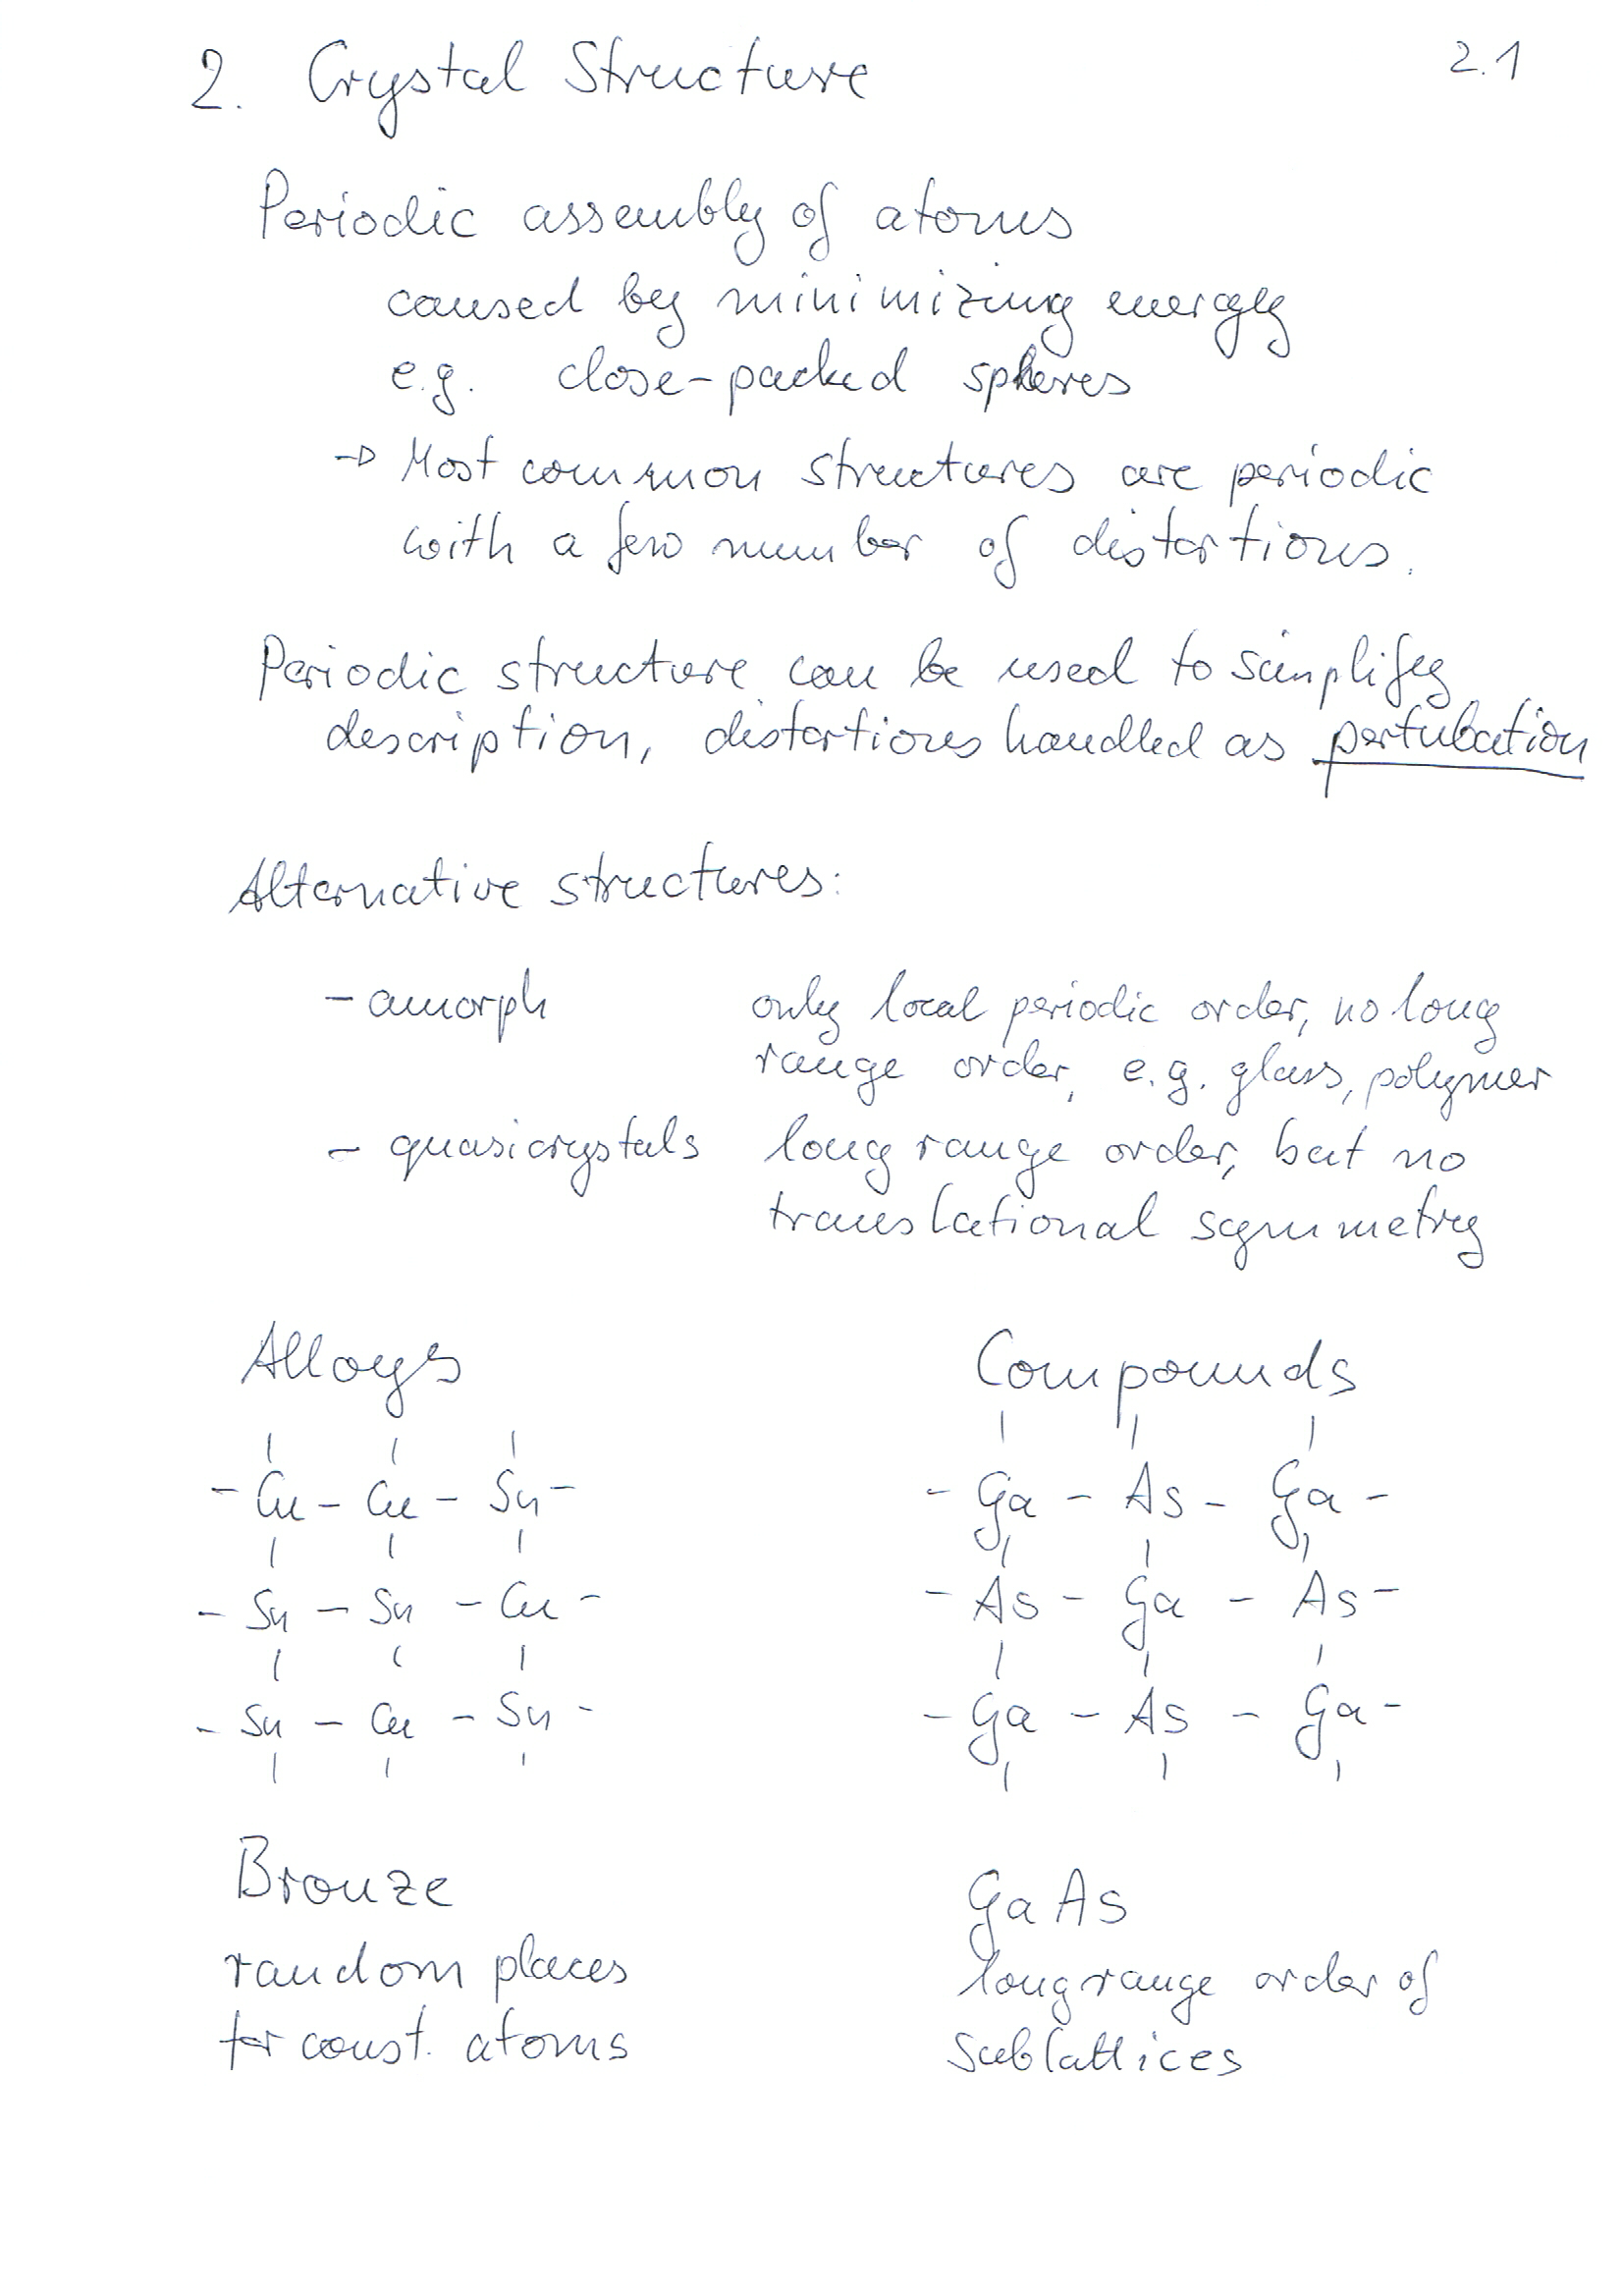 2. Crystal Structure 2.1
Periodic assembly of atoms
caused by minimizing energy
e.g. close-packed spheres
→ Most common structures are periodic
with a few number of distortions.
Periodic structure can be used to simplify
description, distortions handled as pertubation
Alternative structures:
- amorph only local periodic order, no long
range order, e.g. glass, polymer
- quasicrystals long range order, but no
translational symmetry
Alloys Compounds
- Cu - Cu - Sn - - Ga - As - Ga -
- Sn - Sn - Cu - - As - Ga - As -
- Sn - Cu - Sn - - Ga - As - Ga -
Bronze GaAs
random places longrange order of
for const. atoms sublattices